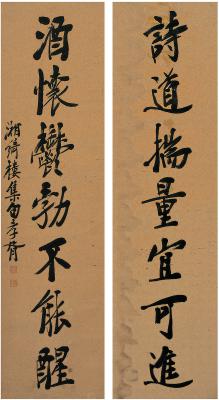 詩道揣量宜可進
酒懷鬱勃不能醒
湘綺樓集句孝胥